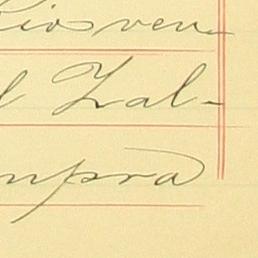 Rios ven-
l Zal-
mpra